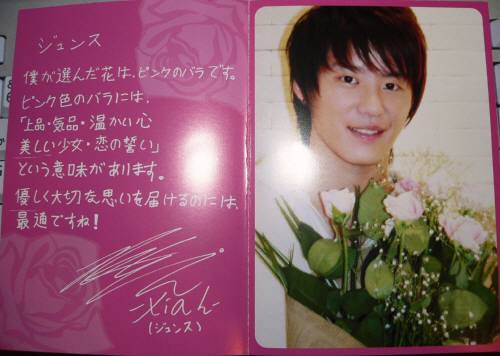 ジュンス
僕が選んだ花は、ピンクのバラです。
ピンク色のバラには、
「上品・気品・温かい心
美しい少女・恋の誓い」
という意味があります。
優しく大切な思いを届けるのには、
最適ですね!
-xiah-
(ジュンス)